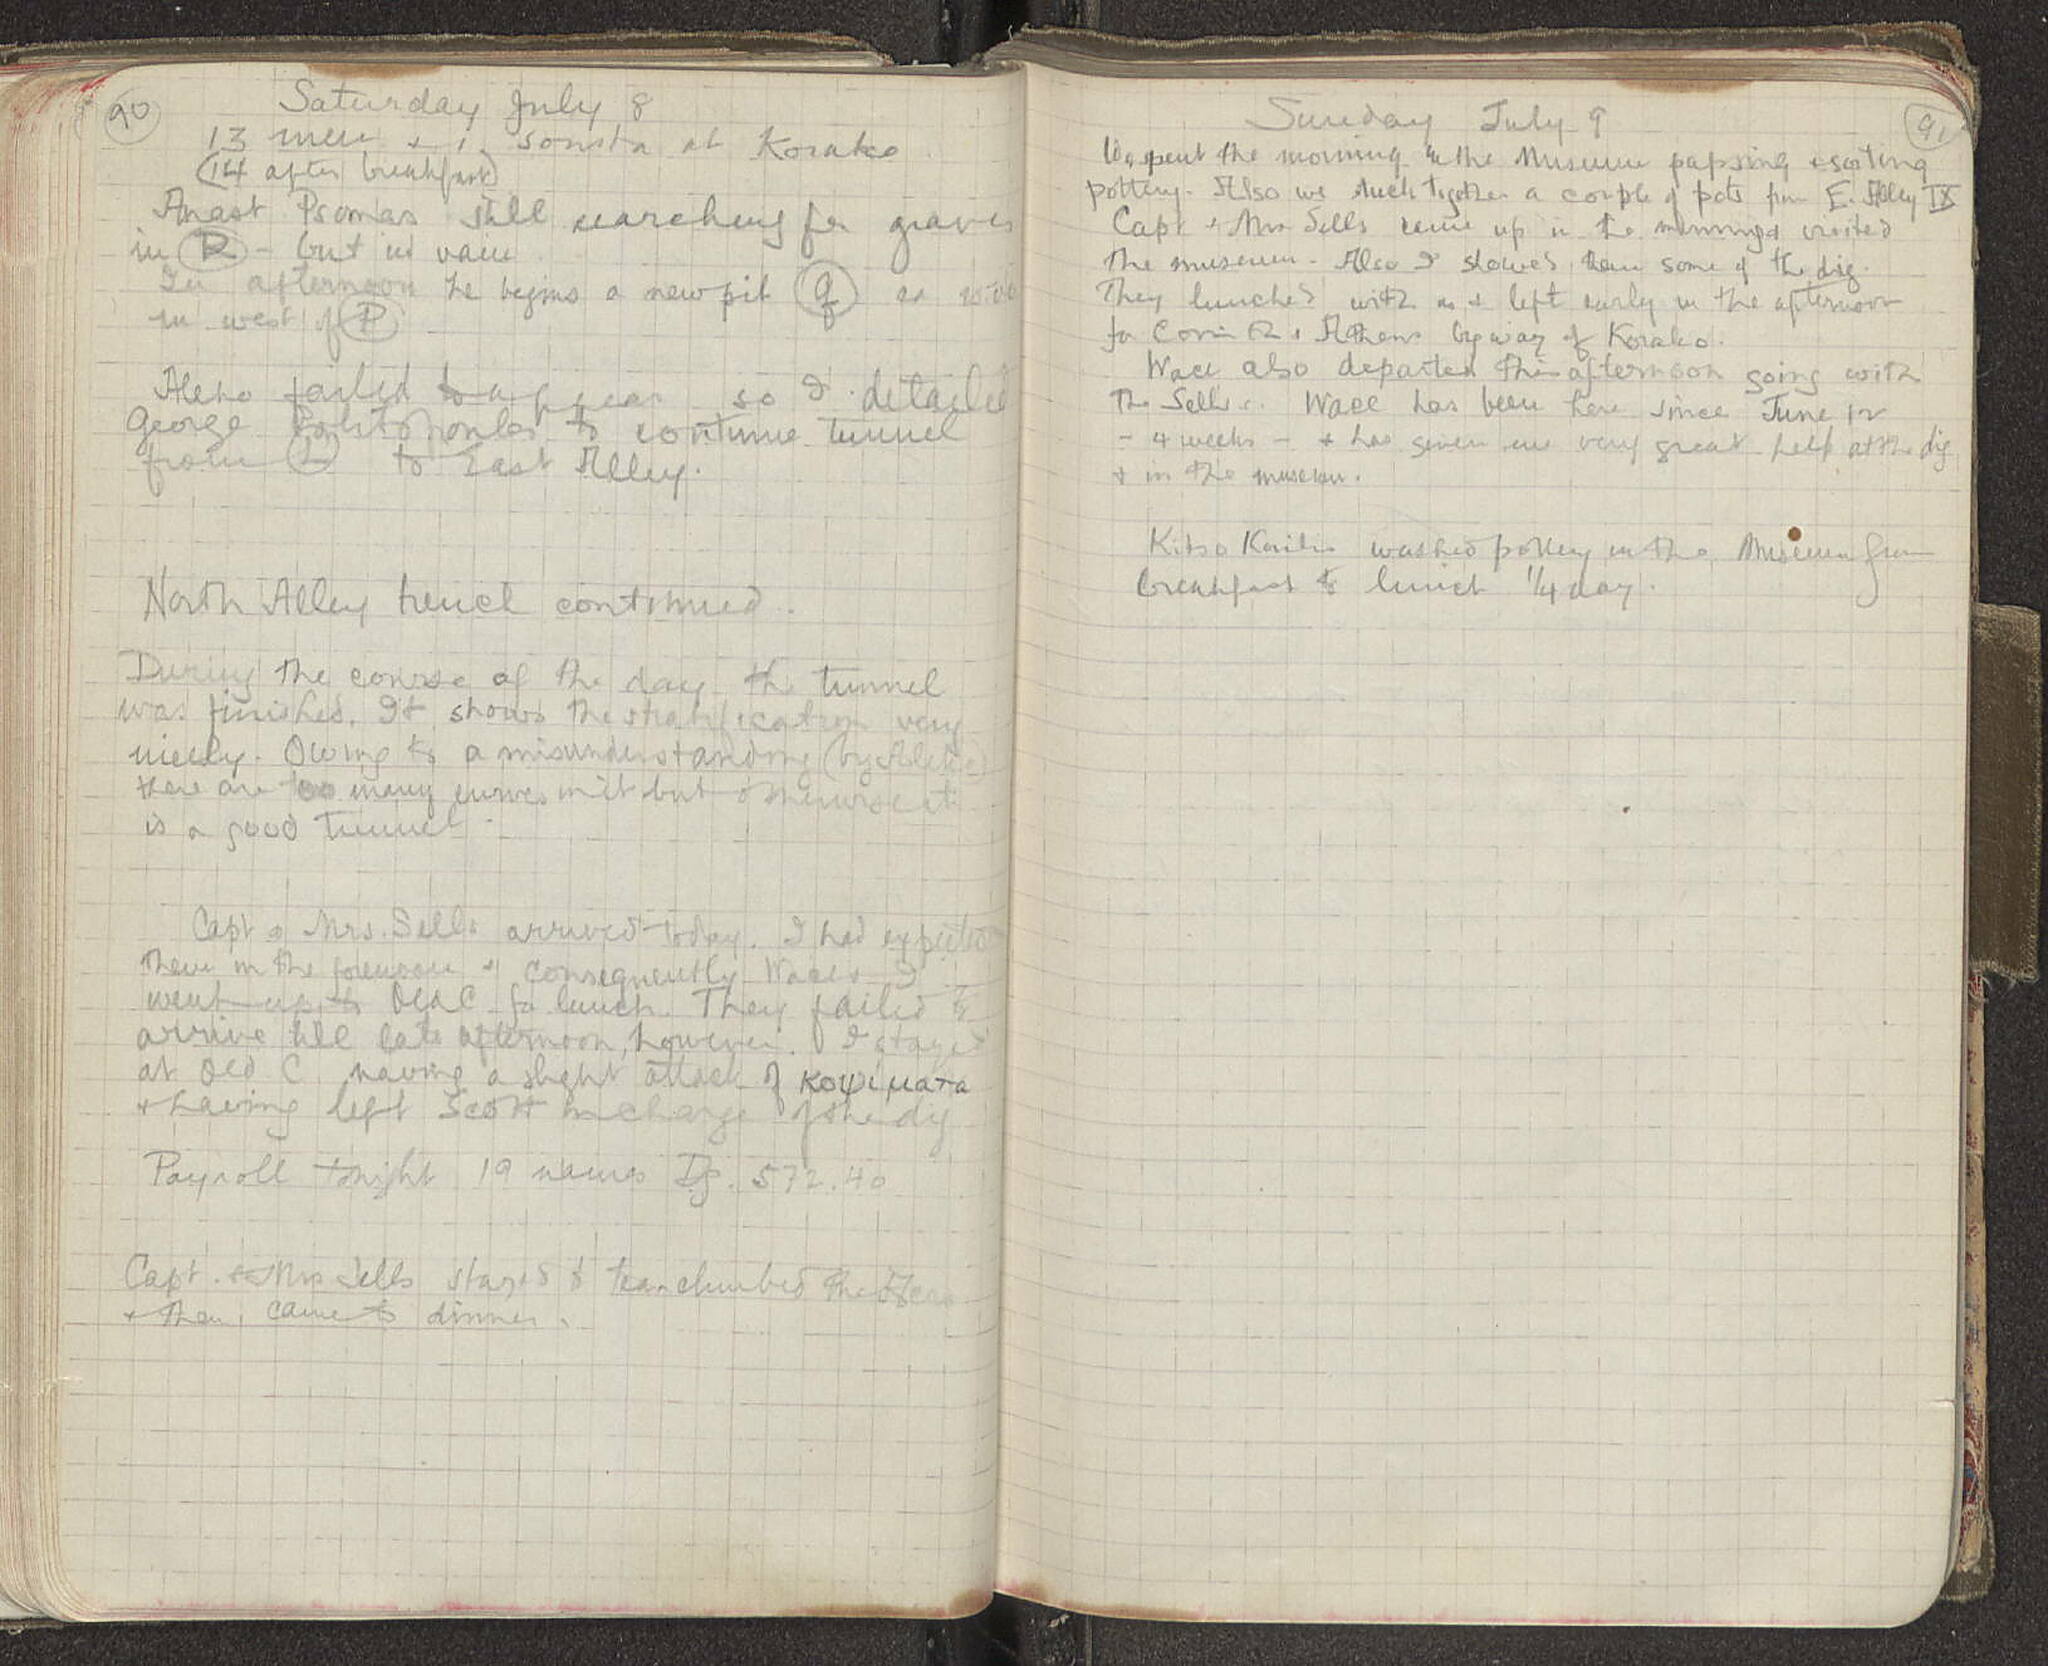 90
Saturday July 8
13 men + 1 sousta at Korako.
(14 after breakfast)
Anast Psomas still searching for graves
in P - but in vain
In afternoon he begins a new pit q
in west of P
Aleko failed to appear so I detailed
George to continue tunnel
from L to East Alley.
North Alley trench continued.
During the course of the day the tunnel
was finished. It shows the stratification very
nicely. Owing to a misunderstanding (by Aleko)
there are too many curves in it but otherwise it
is a good tunnel.
Capt & Mrs. Sells arrived today. I had expected
them in the forenoon & consequently Wace & I
went up to Old C for lunch. They failed to
arrive till late afternoon, however. I stayed
at Old C having a slight attack of κοψιματα
& having left Scott in charge of the dig
Payroll tonight 19 names Dr. 572.40
Capt. & Mrs Sells stayed to tea climbed the
& then came to dinner.
91
Sunday July 9
We spent the morning in the Museum papsing & sorting
pottery. Also we stuck together a couple of pots from E. Alley IX
Capt & Mrs Sells came up in the morning & visited
the museum. Also I showed them some of the dig.
They lunched with us & left early in the afternoon
for Corinth & Athens by way of Korako.
Wace also departed this afternoon going with
the Sells. Wace has been here since June 12
- 4 weeks - & has given me very great help at the dig
& in the museum.
Kitso washed pottery in the Museum from
breakfast to lunch 1/4 day.